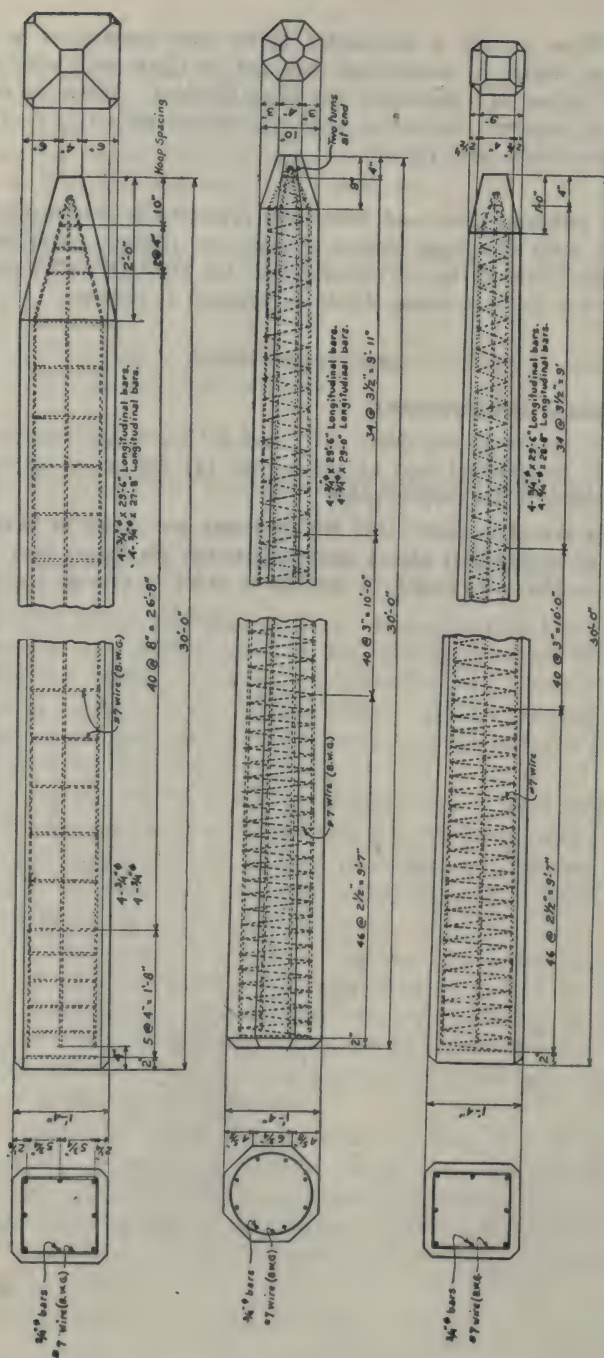 6"
4"
6"
Hoop Spacing
10"
2@4"
2'-0"
4-¾"ᶲ x 29'-6" Longitudinal bars.
4-¾"ᶲ x 27'-8" Longitudinal bars.
#7 wire (B.W.G.)
4-¾"ᶲ
4-¾"ᶲ
40 @ 8" = 26'-8"
5 @ 4" = 1'-8"
4"
2"
30'-0"
1'-4"
2¼"
5¾"
5¾"
2¼"
¾"ᶲ bars
#7 wire (B.W.G)
3"
4"
3"
10"
Two turns
at end
8"
4"
4-¾"ᶲ x 29'-6" Longitudinal bars.
4-¾"ᶲ x 29'-0" Longitudinal bars.
34 @ 3½" = 9'-11"
#7 wire (B.W.G)
40 @ 3" = 10'-0"
46 @ 2½" = 9'-7"
2"
30'-0"
1'-4"
4⅝"
6¾"
4⅝"
¾"ᶲ bars
#7 wire (B.W.G)
9"
4"
1'-0"
4"
4-¾"ᶲ x 29'-6" Longitudinal bars.
4-¾"ᶲ x 28'-8" Longitudinal bars.
34 @ 3½" = 9'
#7 wire
40 @ 3" = 10'-0"
46 @ 2½" = 9'-7"
2"
30'-0"
1'-4"
¾"ᶲ bars
#7 wire (B.W.G.